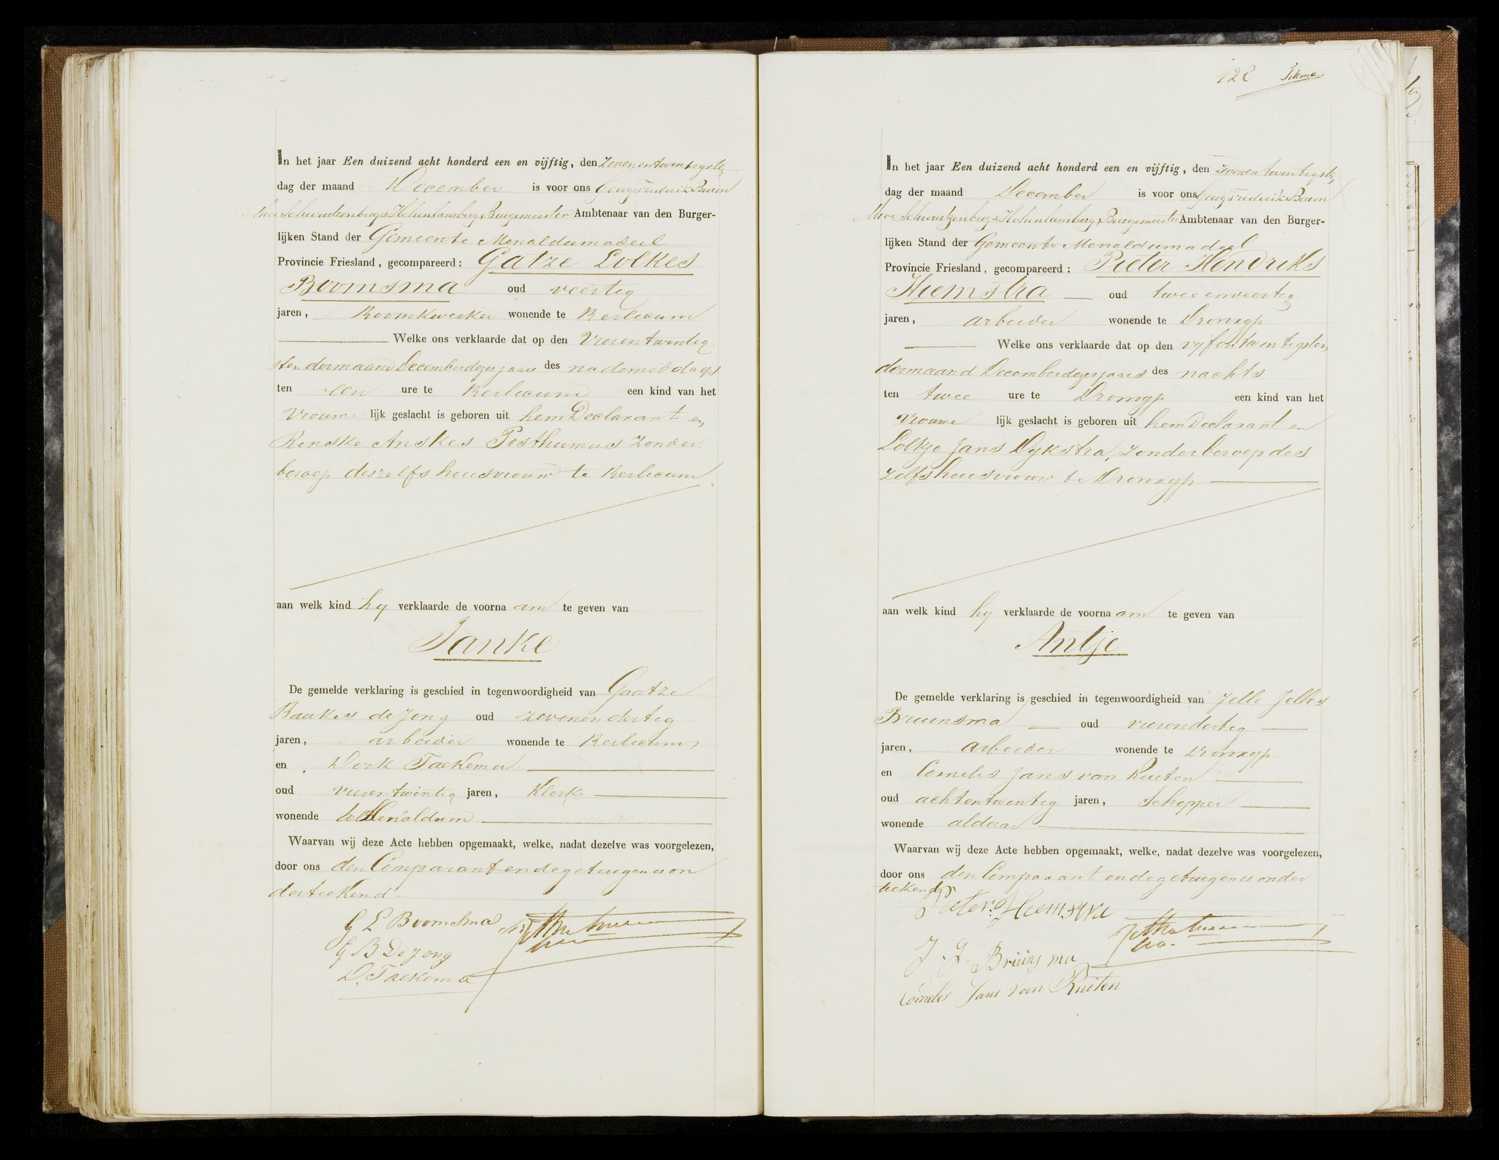 In het jaar Een duizend acht honderd een en vijftig, den Zevenentwintigste
dag der maand December is voor ons Georg Frederik Baron
thoe Schwartzenberg & Hohenlansberg, Burgemeester Ambtenaar van den Burger-
lijken Stand der Gemeente Menaldumadeel
Provincie Friesland, gecompareerd: Gatze Lolkes
Boomsma oud veertig
jaren, Boomkweeker wonende te Berlicum
Welke ons verklaarde dat op den Vierentwintig
sten dermaand December dezes jaars des nademiddags
ten een ure te Berlicum een kind van het
Vrouwe lijk geslacht is geboren uit hem Declarant en
Renske Anskes Posthumus Zonder
beroep deszelfs huisvrouw te Berlicum
aan welk kind hy verklaarde de voorna am te geven van
Janke
De gemelde verklaring is geschied in tegenwoordigheid van Gaatze
Baukes de Jong oud zevenendertig
jaren, arbeider wonende te Berlicum
en Derk Taekema
oud vierentwintig jaren, Klerk
wonende te Menaldum
Waarvan wij deze Acte hebben opgemaakt, welke, nadat dezelve was voorgelezen,
door ons den Comparant en de getuigen is on
derteekend
G L Boomsma
G B De Jong
D. Taekema
122
In het jaar Een duizend acht honderd een en vijftig, den Zevenentwintigste
dag der maand December is voor ons Georg Frederik Baron
thoe Schwartzenberg & Hohenlansberg, Burgemeester Ambtenaar van den Burger-
lijken Stand der Gemeente Menaldumadeel
Provincie Friesland, gecompareerd: Pieter Hendriks
Hiemstra oud tweeenveertig
jaren, arbeider wonende te Dronryp
Welke ons verklaarde dat op den vyfentwintigsten
dermaand December dezes jaars des nachts
ten twee ure te Dronryp een kind van het
vrouwe lijk geslacht is geboren uit hem Declarant en
Lolkje Jans Dykstra, zonder beroep des
zelfs huisvrouw te Dronryp
aan welk kind hy verklaarde de voorna am te geven van
Antje
De gemelde verklaring is geschied in tegenwoordigheid van Jelle Jelles
Bruinsma oud vierendertig
jaren, arbeider wonende te Dronryp
en Cornelis Jans van Kuiten
oud achtentwintig jaren, Schipper
wonende aldaar
Waarvan wij deze Acte hebben opgemaakt, welke, nadat dezelve was voorgelezen,
door ons den Comparant en de getuigen is onder
teekend
Pieter H Hiemstra
J. J. Bruinsma
Cornelis Jans van Kuiten